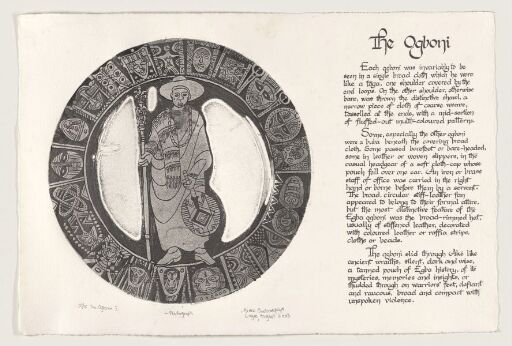 The Ogboni
Each ogboni was invariably to be
seen in a single broad cloth which he wore
like a toga, one shoulder covered by the
end loops. On the other shoulder, otherwise
bare, was thrown the distinctive shawl, a
narrow piece of cloth of coarse weave,
tasselled at the ends, with a mid-section
of fluffed-out multi-coloured patterns.
Some, especially the other ogboni
wore a buba beneath the covering broad
cloth. Some passed barefoot or bare-headed,
some in leather or woven slippers, in the
casual headgear of a soft cloth-cap whose
pouch fell over one ear. An iron or brass
staff of office was carried in the right
hand or borne before them by a servant.
The broad, circular stiff-leather fan
appeared to belong to their formal attire,
but the most distinctive feature of the
Egba ogboni was the broad-rimmed hat,
usually of stiffened leather, decorated
with coloured leather or raffia strips,
cloths or beads.
The ogboni slid through Ake like
ancient wraiths, silent, dark and wise,
a tanned pouch of Egba history, of its
mysteries, memories and insights, or
thudded through on warriors' feet, defiant
and raucous, broad and compact with
unspoken violence.